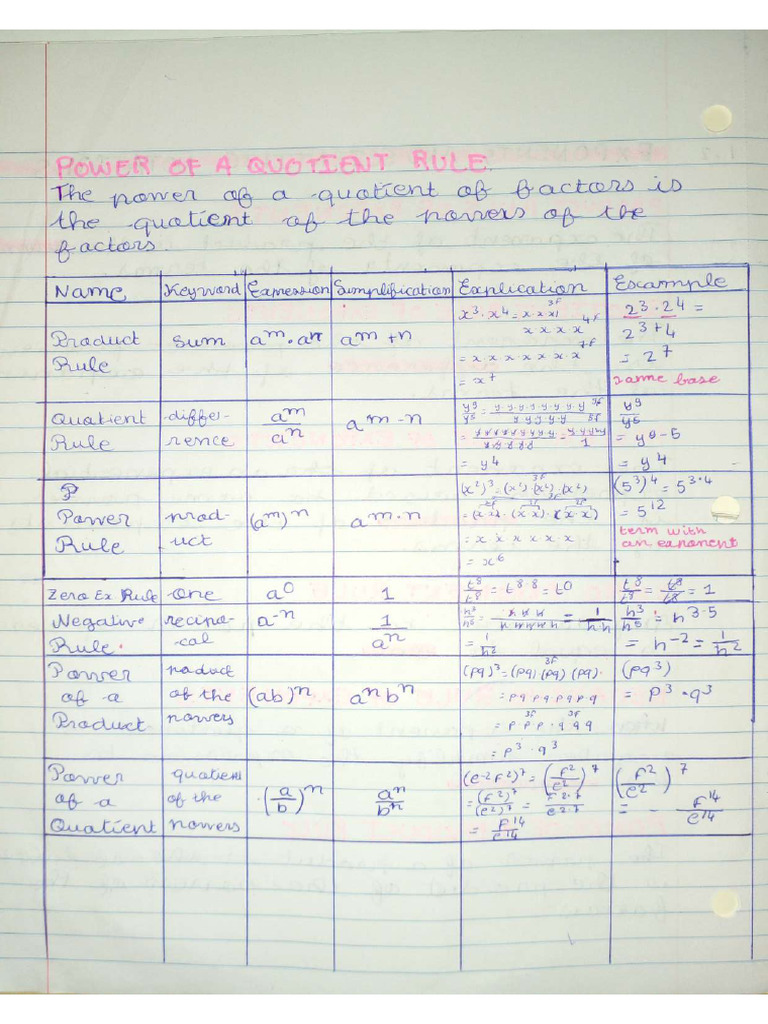 POWER OF A QUOTIENT RULE.
The power of a quotient of factors is
the quotient of the powers of the
factors.
Name Keyword Expression Simplification Explication Example
Product Rule sum a^m · a^n a^m+n x³·x⁴ = x·x·x 3f x x x x 4f = x x x x x x·x 7f = x⁷ 2³·2⁴ = 2³⁺⁴ = 2⁷ same base
Quatient Rule diffe-rence a^m/a^n a^m-n = y⁴ y⁹/y⁵ = y⁹⁻⁵ = y⁴
P
Power Rule prod-uct (a^m)^n a^m·n (x²)³ = (x²)·(x²)·(x²) 3f = (x x)·(x x)·(x·x) = x x x x x x = x⁶ (5³)⁴ = 5³·⁴ = 5¹² term with an exponent
Zero Ex Rule one a⁰ 1 t⁸/t⁸ = t⁸·⁸ = t⁰ t⁸/t⁸ = t⁸/t⁸ = 1
Negative Rule. recipro-cal a⁻ⁿ 1/aⁿ h³/h⁵ = h h h/h h h h h = 1/h·h = 1/h² h³/h⁵ = h³⁻⁵ = h⁻² = 1/h²
Power of a Product product of the powers (ab)ⁿ aⁿbⁿ (pq)³ = (pq) (pq) (pq). 3f = pq pq pq = p·p·p · q q q 3f 3f = p³·q³ (pq³) = p³·q³
Power of a Quatient quotient of the powers (a/b)ⁿ aⁿ/bⁿ (e⁻²f²)⁷ = (f²/e²)⁷ = (f²)⁷/(e²)⁷ = f²·⁷/e²·⁷ = f¹⁴/e¹⁴ (f²/e²)⁷ = - f¹⁴/e¹⁴